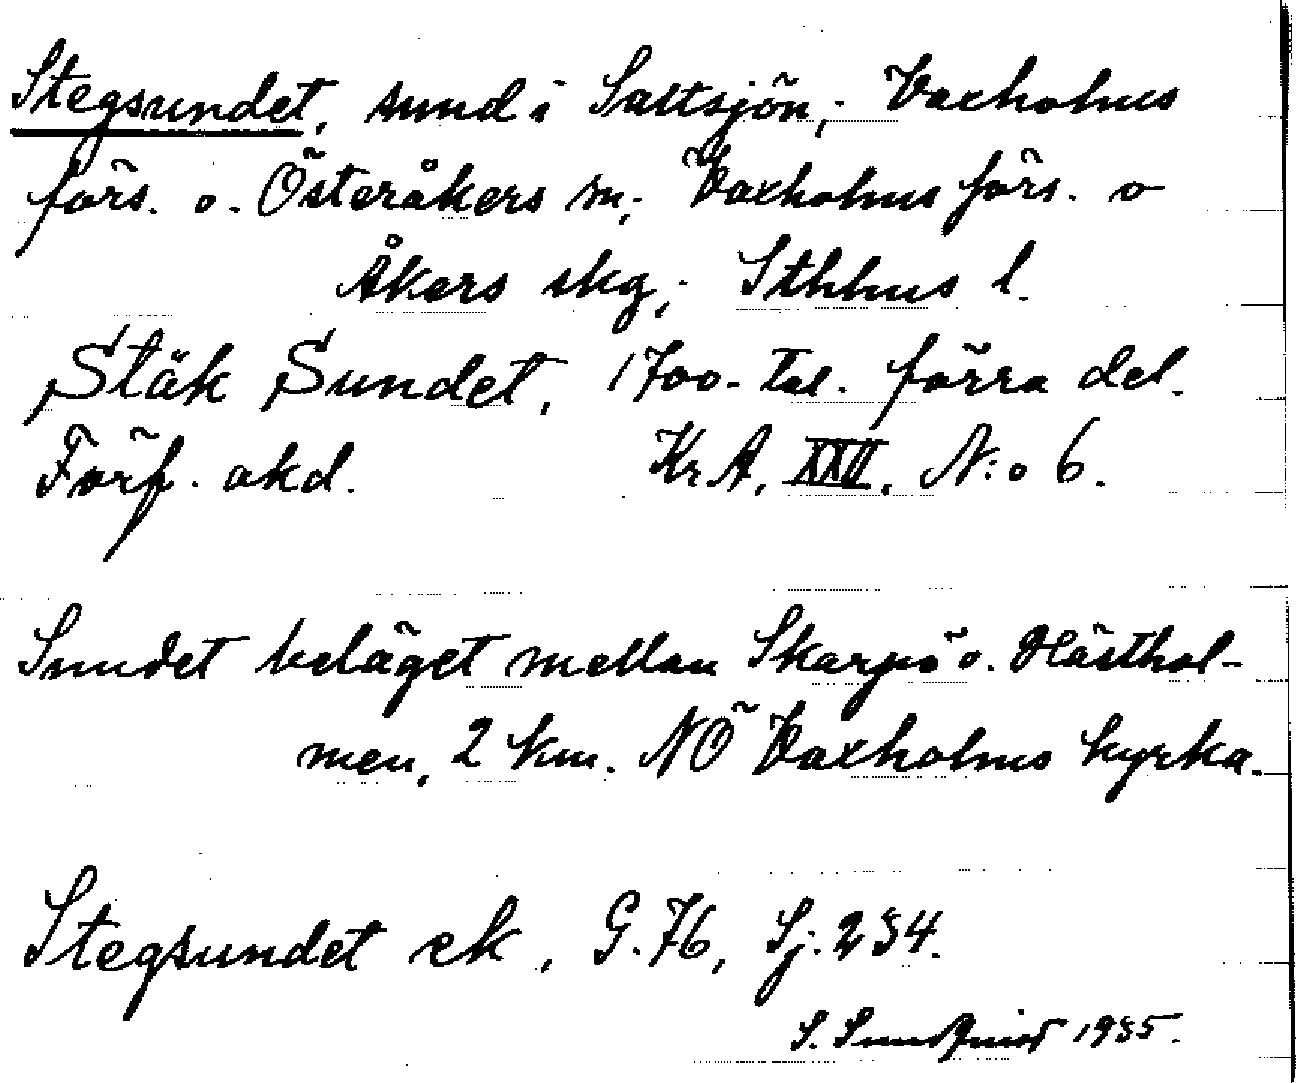 Stegsundet, sund i Saltsjön, Vaxholms
förs. o. Österåkers sn; Vaxholms förs. o
Åkers skg; Sthlms l.
Stäk Sundet, 1700-tal. förra del.
Förf. okd. Kr.A. XXII, N:o 6.
Sundet beläget mellan Skarpö o. Hästhol-
men, 2 km. NÖ Vaxholms kyrka.
Stegsundet ek, G.76, Sj. 234.
S. Sundqvist 1935.